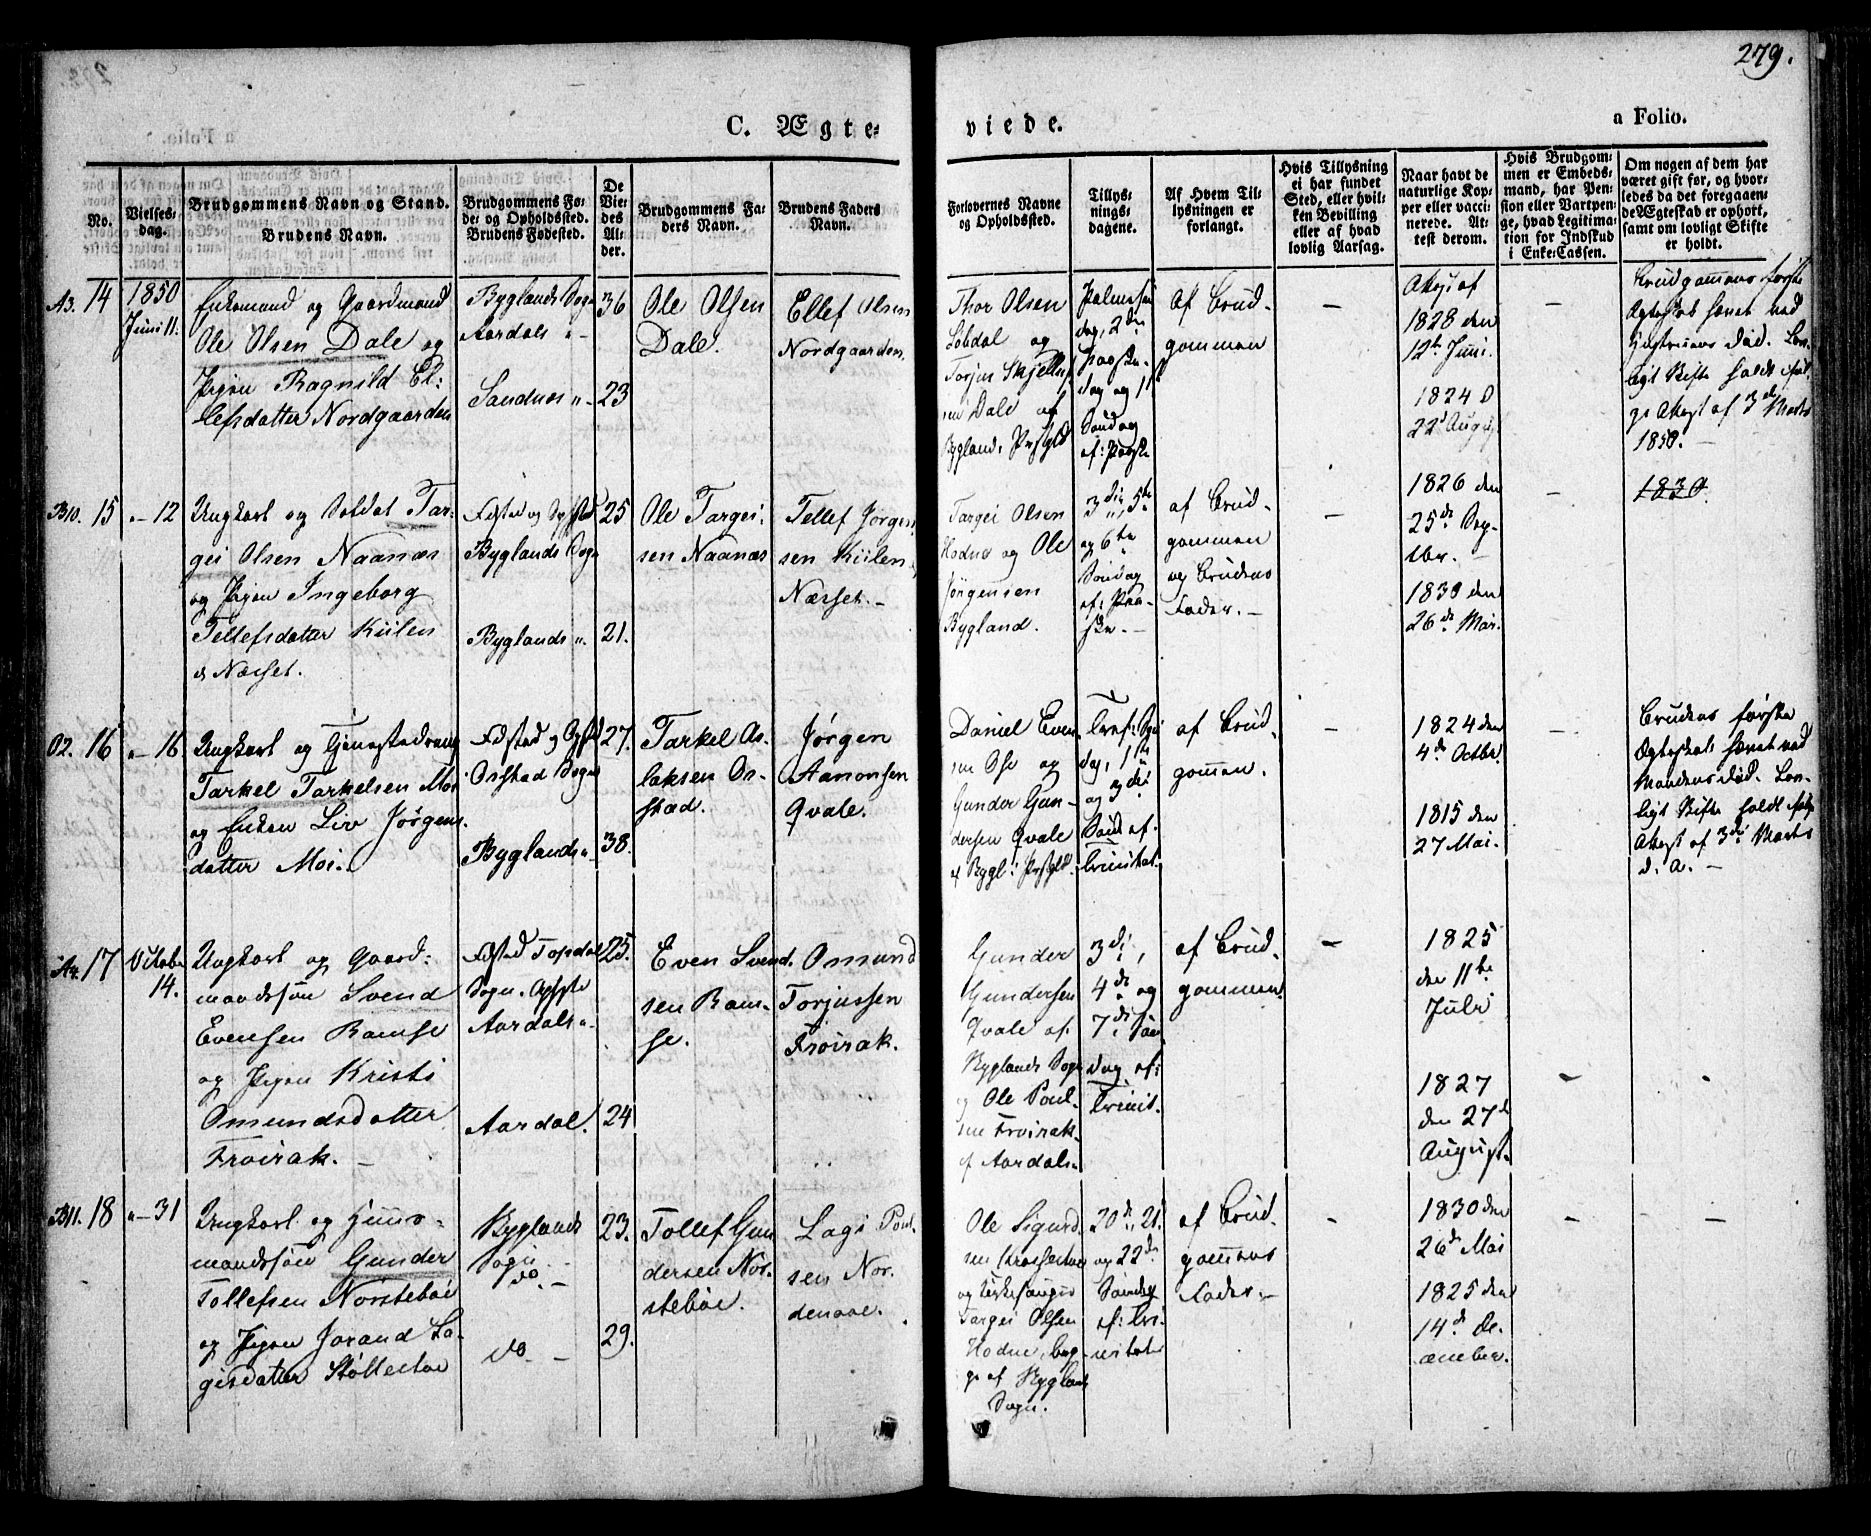 279.
C. Ægte-
viede.
a Folio.
No.
Vielses-
dag.
Brudgommens Navn og Stand.
Brudens Navn.
Brudgommens Fø-
de- og Opholdssted.
Brudens Fødested.
De
Vie-
des
Al-
der.
Brudgommens Fa-
ders Navn.
Brudens Faders
Navn.
Forlovernes Navne
og Opholdssted.
Tillys-
nings-
dagene.
Af Hvem Til-
lysningen er
forlangt.
Hvis Tillysning
ei har fundet
Sted, eller hvil-
ken Bevilling
eller af hvad
lovlig Aarsag.
Naar havt de
naturlige Kop-
per eller vacci-
nerede. At-
test derom.
Hvis Brudgom-
men er Embeds-
mand, har Pen-
sion eller Vartpen-
ge, hvad Legitima-
tion for Indskud
i Enke-Cassen.
Om nogen af dem har
været gift før, og hvor-
ledes da det foregaaen-
de Ægteskab er ophørt,
samt om lovligt Skifte
er holdt.
A3. 14
1850
Juni 11.
Enkemand og Gaardmand
Ole Olsen Dale og
Pigen Ragnild El-
lefsdatter Nordgaarden
Byglands Sogn
Aardals "
Sandnes "
36
23
Ole Olsen
Dale.
Ellef Olsen
Nordgaarden.
Thor Olsen
og
Torjus
Dale af
Bygland
Palmesøn
dag, 2den
Paaske-
dag og 1ste
Søndag
ef: Paaske
af Brud-
gommen
—
Atest af
1828 den
12te Juni.
1824 d
22d August
—
Brudgommens første
Ægteskab hævet ved
Hustruens Død. Lov-
ligt Skifte holdt iføl-
ge Attest af 3de Marts
1850. —
B10. 15
" — 12
Ungkarl og Soldat Tar-
gei Olsen Naanæs
og Pigen Ingeborg
Tellefsdatter Kiilen
Næset.
Fødsted og Ophsted
Byglands Sogn
Byglands ".
25
21.
Ole Targei-
sen Naanæs
Tellef Jørgen-
sen Kiilen
Næset. —
Targei Olsen
Hodne og Ole
Jørgensen
Bygland.
3die, 5te
og 6te
Søndag
ef: Paa-
ske. —
af Brud-
gommen
og Brudens
Fader. —
—
1826 den
25de
1830 den
26de Mai.
—
1830.
O2. 16
" — 16
Ungkarl og Tjenestedreng
Tarkel Tarkelsen Moi
og Enken Liv Jørgens-
datter Moi.
Fødsted og Ophst
Orstad Sogn
Byglands "
27.
38.
Tarkel As-
laksen Or-
stad.
Jørgen
Aanonsen
Qvale.
Daniel Even-
sen Ose og
Gunder Gun-
dersen Qvale
af Bygl: Prstgld.
dag, 1ste
og 3die
Sønd ef.
Trinitat.
af Brud-
gommen.
—
1824 den
4de Octbr.
1815 den
27 Mai.
—
Brudens første
Ægteskab hævet ved
Mandens Død. Lov-
ligt Skifte holdt
Attest af 3die Marts
d. A. —
A4. 17
October
14.
Ungkarl og Gaard-
mandssøn Svend
Evensen Ramse
og Pigen Kristi
Omundsdatter
Frøirak. —
Fødsted Topdal
Sogn. Ophst
Aardals ".
Aardal.
25.
24
Even Svend-
sen Ram-
se.
Omund
Torjussen
Frøirak.
Gunder
Gundersen
Qvale af
Byglands Sogn
og Ole Poul-
sen Frøirak
af Aardals
3die,
4de og
7de Søn
dag ef:
Trinit.
af Brud-
gommen.
—
1825
den 11te
Juli
1827
den 27de
August.
—
—
B11. 18
" — 31
Ungkarl og Huus-
mandssøn Gunder
Tollefsen Norstebøe
og Pigen Jorand La-
gisdatter Støllestøe
Byglands
Sogn
do. —
do. —
23.
29.
Tollef Gun-
dersen Nor-
stebøe.
Lagi Poul-
sen Nor-
denaae.
Ole Sigurd-
sen
og Kirkesanger
Targei Olsen
Hodne, beg-
ge af Bygland
Sogn.
20de, 21.
og 22de
Søndag
ef: Tri-
nitatis
af Brud-
gommens
Fader. —
—
1830 den
26de Mai
1825 den
14de De-
cember.
—
—